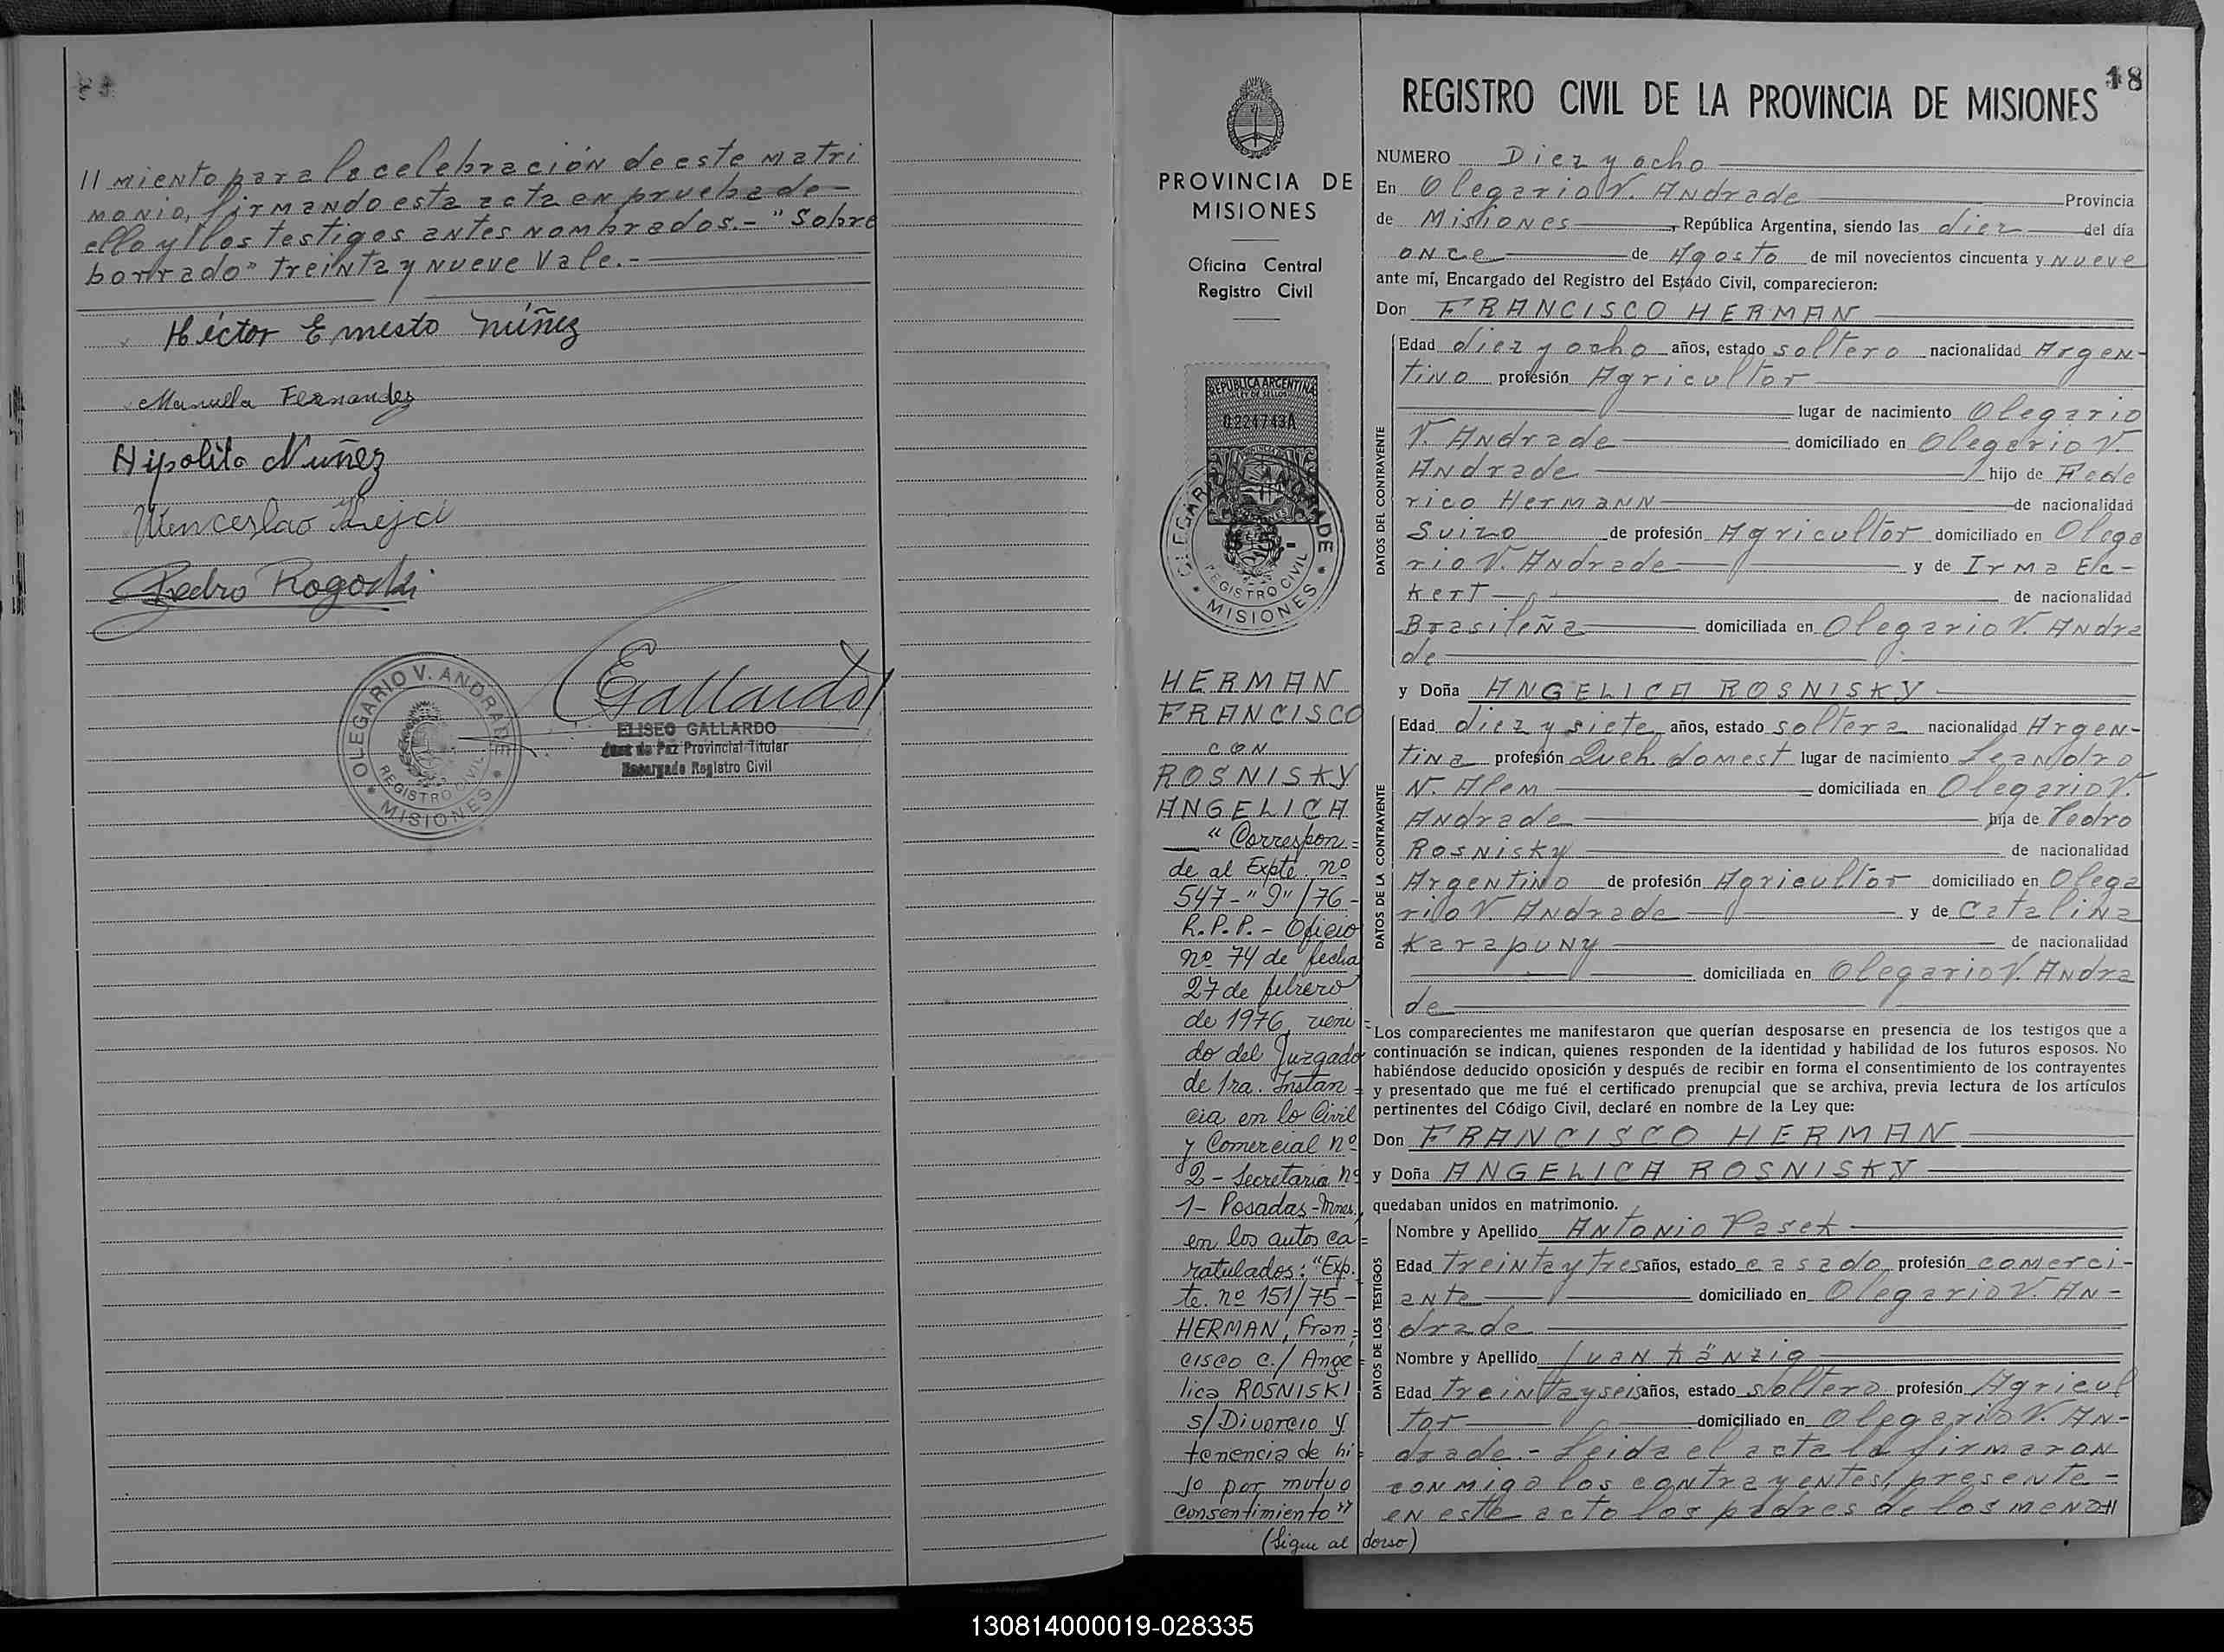 II miento para la celebración de este matri
monio, firmando esta acta en prueba de -
ello y los testigos antes nombrados.- "Sobre
borrado" treinta y nueve Vale.-
Héctor Ernesto Núñez
Manuela Fernandez
Hipolito Nuñez
Wenceslao
Pedro Rogoski
EGallardo
OLEGARIO V. ANDRADE
REGISTRO CIVIL
* MISIONES *
ELISEO GALLARDO
Juez de Paz Provincial Titular
Encargado Registro Civil
PROVINCIA DE
MISIONES
Oficina Central
Registro Civil
REPUBLICA ARGENTINA
LEY DE SELLOS
0.221743A
OLEGARIO V. ANDRADE
REGISTRO CIVIL
* MISIONES *
HERMAN
FRANCISCO
CON
ROSNISKY
ANGELICA
" Correspon=
de al Expte. nº
547-"9"/76-
R.P.P.- Oficio
nº 74 de fecha
27 de febrero
de 1976, veni=
do del Juzgado
de 1ra. Instan=
cia en lo Civil
y Comercial nº
2- Secretaria nº
1- Posadas-Mnes.,
en los autos ca=
ratulados: "Exp.
te. nº 151/75-
HERMAN, Fran=
cisco c./ Ange=
lica ROSNISKI
s/ Divorcio y
tenencia de hi=
jo por mutuo
consentimiento"
(Sigue al dorso)
18
REGISTRO CIVIL DE LA PROVINCIA DE MISIONES
NUMERO Diez y ocho
En Olegario V. Andrade Provincia
de Misiones, República Argentina, siendo las diez del día
once de Agosto de mil novecientos cincuenta y nueve
ante mí, Encargado del Registro del Estado Civil, comparecieron:
Don FRANCISCO HERMAN
DATOS DEL CONTRAYENTE
Edad diez y ocho años, estado soltero nacionalidad Argen-
tino profesión Agricultor
lugar de nacimiento Olegario
V. Andrade domiciliado en Olegario V.
Andrade hijo de Fede
rico Hermann de nacionalidad
Suizo de profesión Agricultor domiciliado en Olega
rio V. Andrade y de Irma Ec-
kert de nacionalidad
Brasileña domiciliada en Olegario V. Andra
de
y Doña ANGELICA ROSNISKY
DATOS DE LA CONTRAYENTE
Edad diez y siete años, estado soltera nacionalidad Argen-
tina profesión Queh. domest lugar de nacimiento Leandro
N. Alem domiciliada en Olegario V.
Andrade hija de Pedro
Rosnisky de nacionalidad
Argentino de profesión Agricultor domiciliado en Olega
rio V. Andrade y de Catalina
Karapuny de nacionalidad
domiciliada en Olegario V. Andra
de
Los comparecientes me manifestaron que querían desposarse en presencia de los testigos que a
continuación se indican, quienes responden de la identidad y habilidad de los futuros esposos. No
habiéndose deducido oposición y después de recibir en forma el consentimiento de los contrayentes
y presentado que me fué el certificado prenupcial que se archiva, previa lectura de los artículos
pertinentes del Código Civil, declaré en nombre de la Ley que:
Don FRANCISCO HERMAN
y Doña ANGELICA ROSNISKY
quedaban unidos en matrimonio.
DATOS DE LOS TESTIGOS
Nombre y Apellido Antonio Pasek
Edad treinta y tres años, estado casado profesión comerci-
ante domiciliado en Olegario V. An-
drade
Nombre y Apellido Juan Känzig
Edad treinta y seis años, estado soltero profesión Agricul
tor domiciliado en Olegario V. An-
drade.- Leida el acta la firmaron
conmigo los contrayentes, presente-
en este acto los padres de los menoII
130814000019-028335